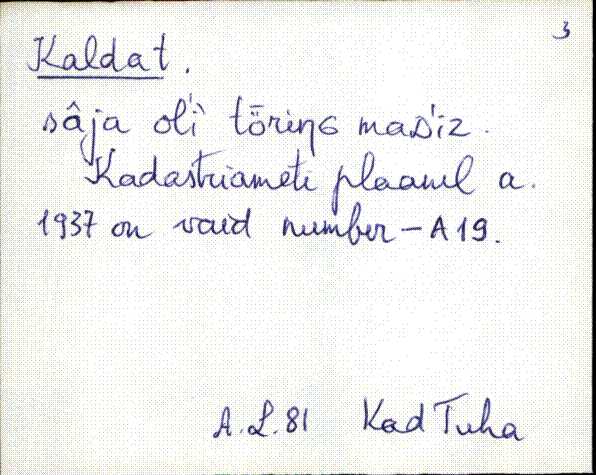 3
Kaldat.
sâja ol'ì tōrìŋɢ mas'iz.
Kadastriameti plaanil a.
1937 on vaid number – A19.
A.L.81 Kad Tuha